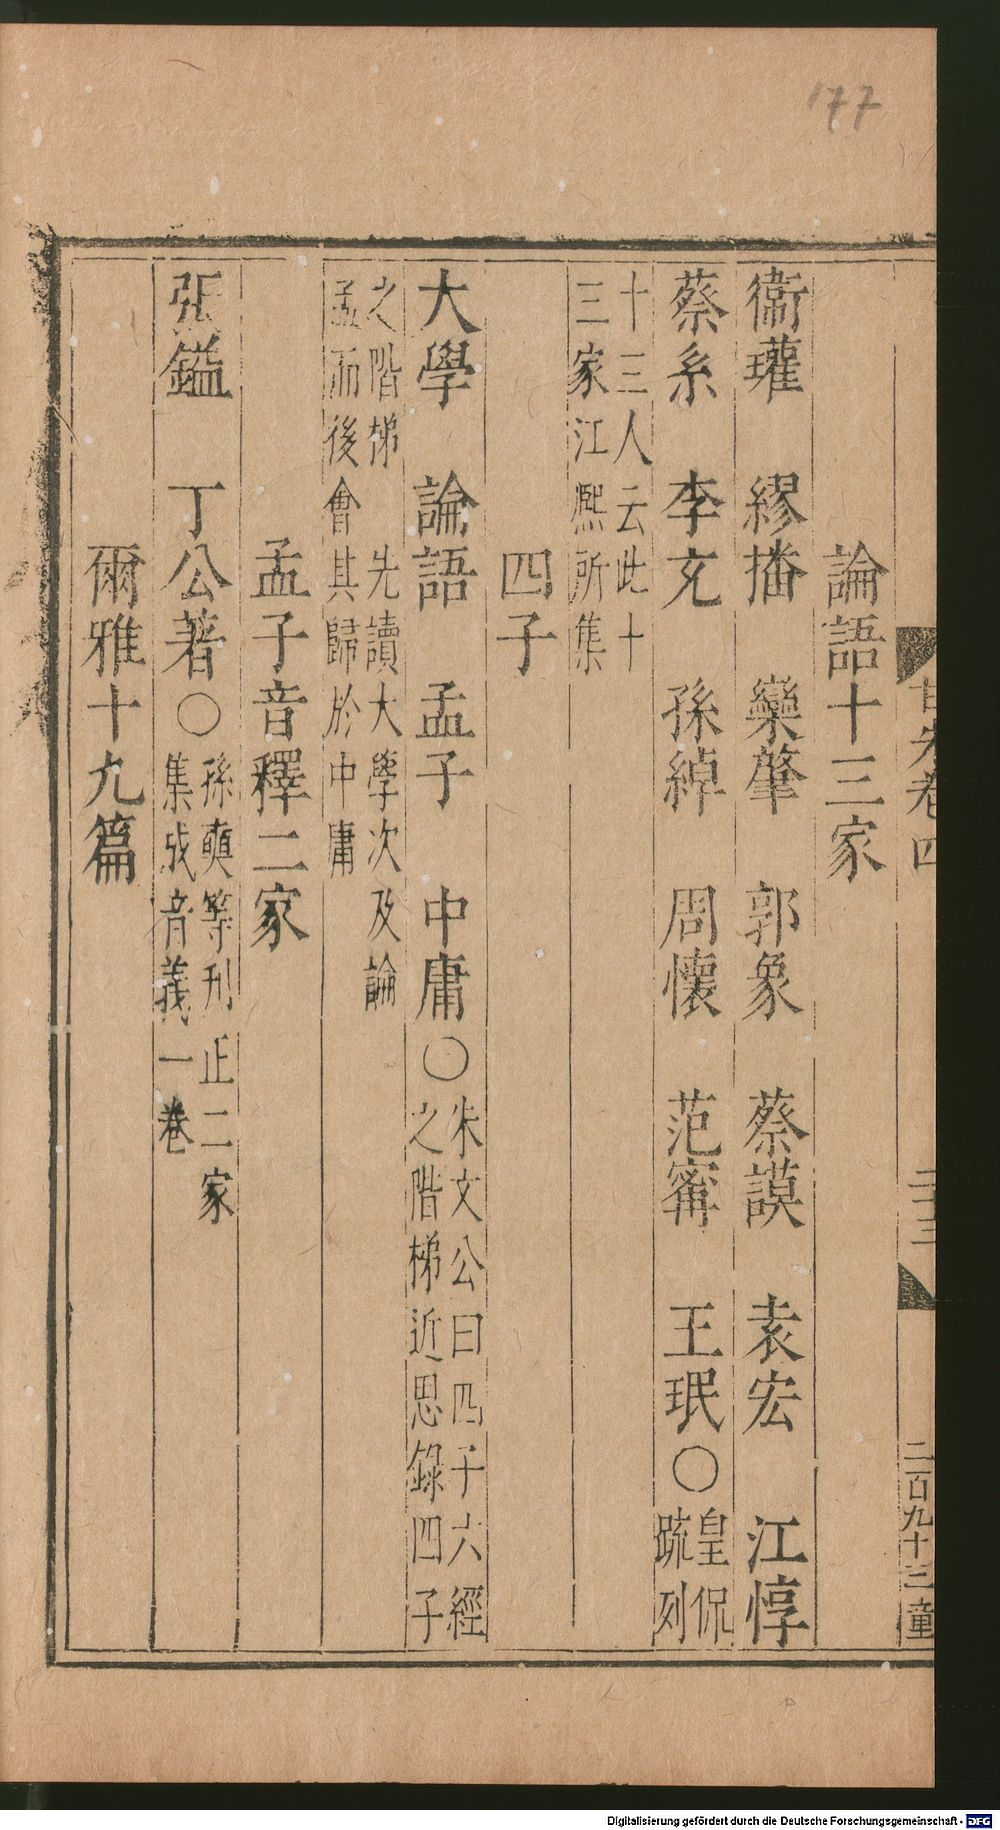 177
論語十三家
衞瓘　繆播　欒肇　郭象　蔡謨　袁宏　江惇
蔡系　李充　孫綽　周懷　范甯　王珉○皇侃
疏列
十三人云此十
三家江熙所集
四子
大學　論語　孟子　中庸○朱文公曰四子六經
之階梯近思錄四子
之階梯　先讀大學次及論
孟而後會其歸於中庸
孟子音釋二家
張鎰　丁公著○孫奭等刋正二家
集成音義一卷
爾雅十九篇
卷四
二十三
二百九十三 童
Digitalisierung gefördert durch die Deutsche Forschungsgemeinschaft - DFG